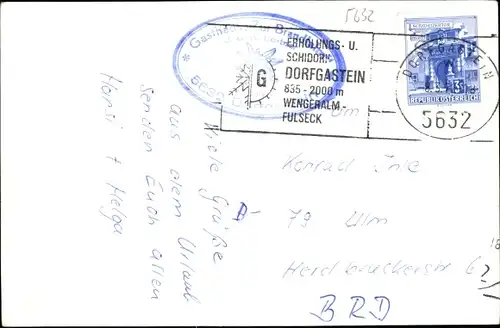 5632
* Gasthaus
5632
ERHOLUNGS- U.
SCHIDORF
DORFGASTEIN
835 - 2000 m
WENGERALM -
FULSECK
G
DORFGASTEIN
5632
REPUBLIK ÖSTERREICH
Viele Grüße
aus dem Urlaub
senden Euch allen
Hansi + Helga
Konrad
D-
79 Ulm
BRD